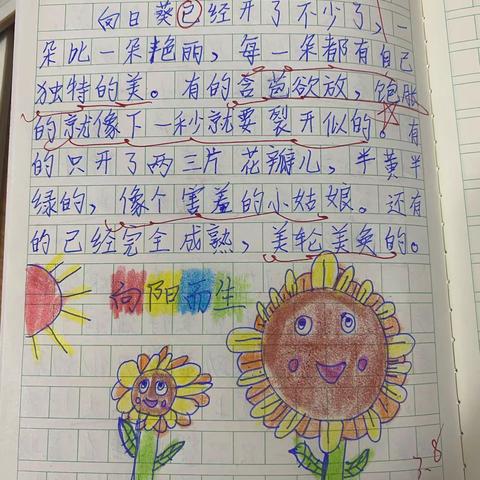 向日葵已经开了不少了，一
朵比一朵艳丽，每一朵都有自己
独特的美。有的含苞欲放，饱胀
的就像下一秒就要裂开似的。有
的只开了两三片花瓣儿，半黄半
绿的，像个害羞的小姑娘。还有
的已经完全成熟，美轮美奂的。
向阳而生
7.8